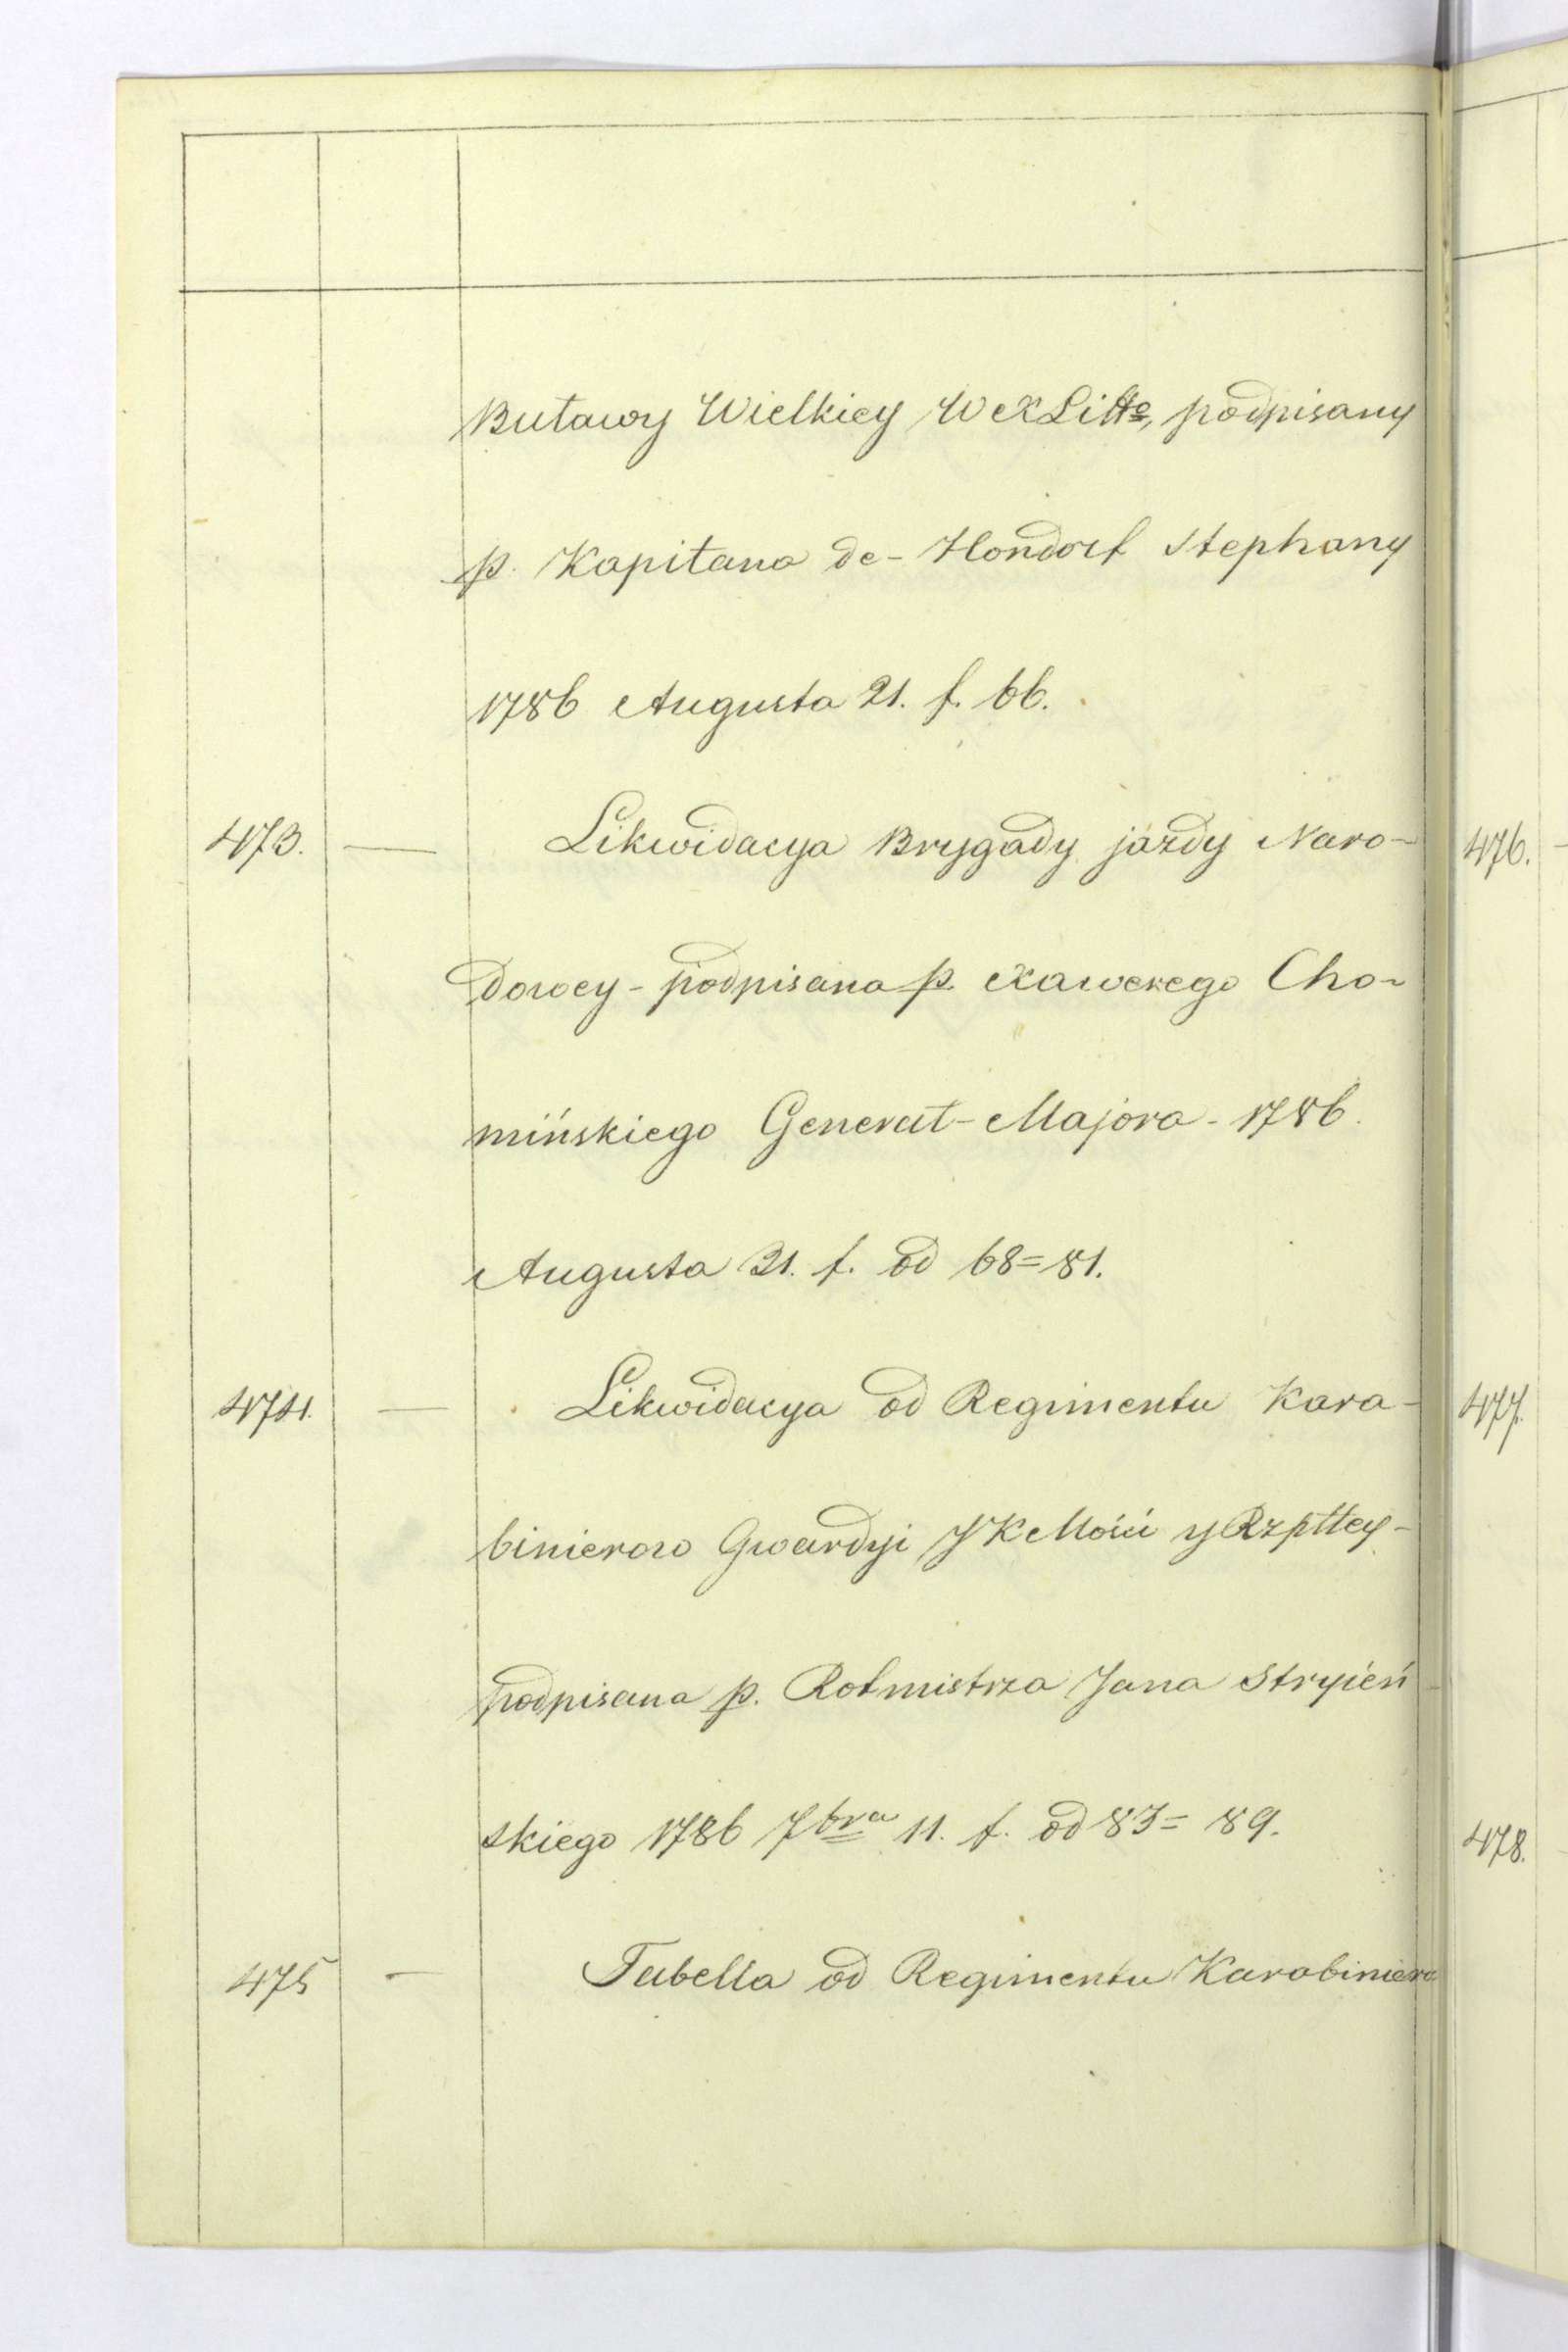 Buławy Wielkiey W X Litto, podpisany
p. Kapitana de-Hondorf Stephany
1786 Augusta 21. f. 66.
473. — Likwidacya Brygady jazdy Naro-
dowey - podpisana p. Xawerego Cho-
mińskiego Generał-Majora - 1786.
Augusta 31. f. od 68=81.
474. — Likwidacya od Regimentu Kara-
binierow Gwardyi JKMości y Rzpttey-
podpisana p. Rotmistrza Jana Stryień
skiego 1786 7bra 11. f. od 83=89.
475 — Tabella od Regimentu Karabiniero
476.
477.
478.